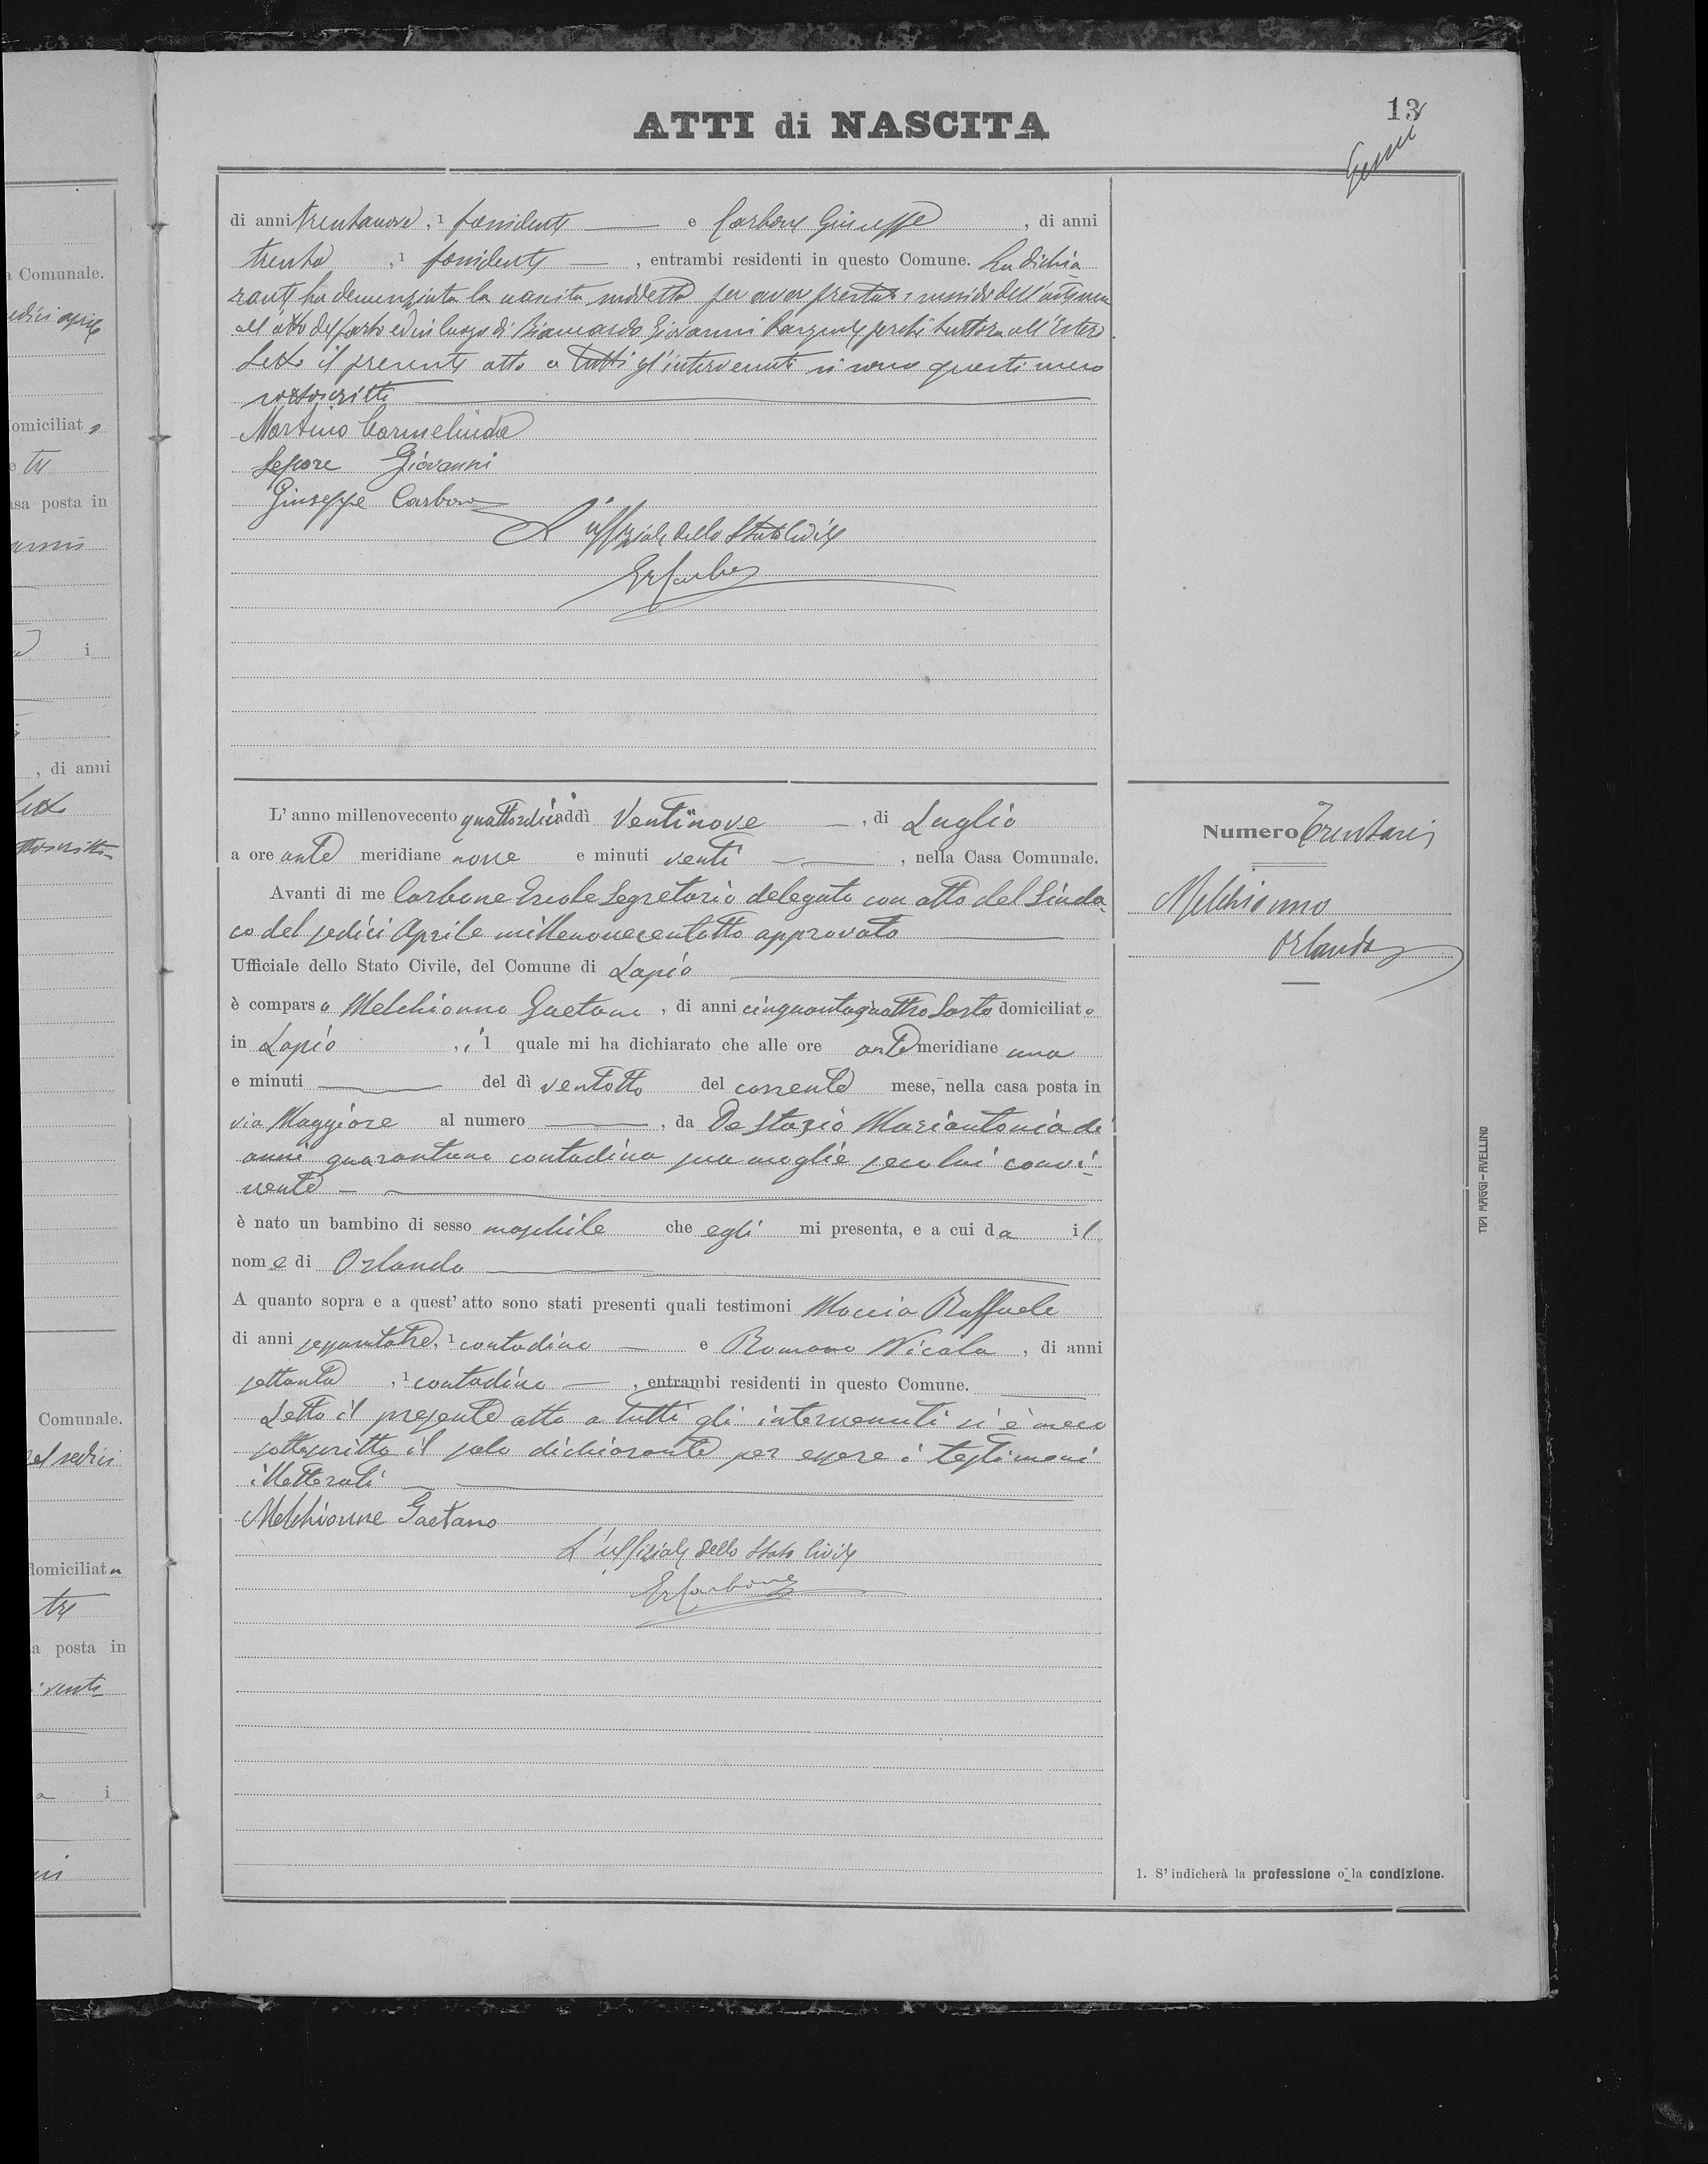 ATTI di NASCITA
13
di anni trentanove, 1 possidente e Carbone Giuseppe, di anni
trenta, 1 possidente, entrambi residenti in questo Comune. La dichia
rante ha denunziata la nascita suddetta per aver prestato i sussidi dell'arte sua
all'atto del parto ed in luogo di Giovanni perchè tuttora all'Estero.
Letto il presente atto a tutti gl'intervenuti si sono questi meco
sottoscritti
Martino Carmelinda
Lepore Giovanni
Giuseppe Carbone
L'uffiziale dello Stato Civile
Er Carbone
L'anno millenovecento quattordici addì Ventinove, di Luglio
a ore ante meridiane nove e minuti venti, nella Casa Comunale.
Avanti di me Carbone Ercole Segretario delegato con atto del Sinda
co del sedici Aprile millenovecentotto approvato
Ufficiale dello Stato Civile, del Comune di Lapio
è comparso Melchionno Gaetano, di anni cinquantaquattro Sarto domiciliato
in Lapio, il quale mi ha dichiarato che alle ore ante meridiane una
e minuti del dì ventotto del corrente mese, nella casa posta in
via Maggiore al numero, da De Stazio Mariantonia di
anni quarantuno contadina sua moglie seco lui convi-
vente
è nato un bambino di sesso maschile che egli mi presenta, e a cui da il
nome di Orlando
A quanto sopra e a quest'atto sono stati presenti quali testimoni Moccia Raffaele
di anni sessantatre, 1 contadino e Romano Nicola, di anni
settanta, 1 contadino, entrambi residenti in questo Comune.
Letto il presente atto a tutti gli intervenuti si è meco
sottoscritto il solo dichiarante per essere i testimoni
illetterati
Melchionne Gaetano
L'uffiziale dello Stato Civile
Er Carbone
Numero Trentasei
Melchionno
Orlando
1. S'indicherà la professione o la condizione.
TIPI MAGGI - AVELLINO
Comunale.
sedici aprile
omiciliat a
e tre
asa posta in
i
, di anni
Letto
Comunale.
del sedici
domiciliata
tre
a posta in
i